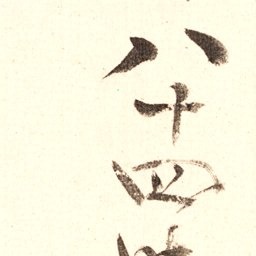 八十四